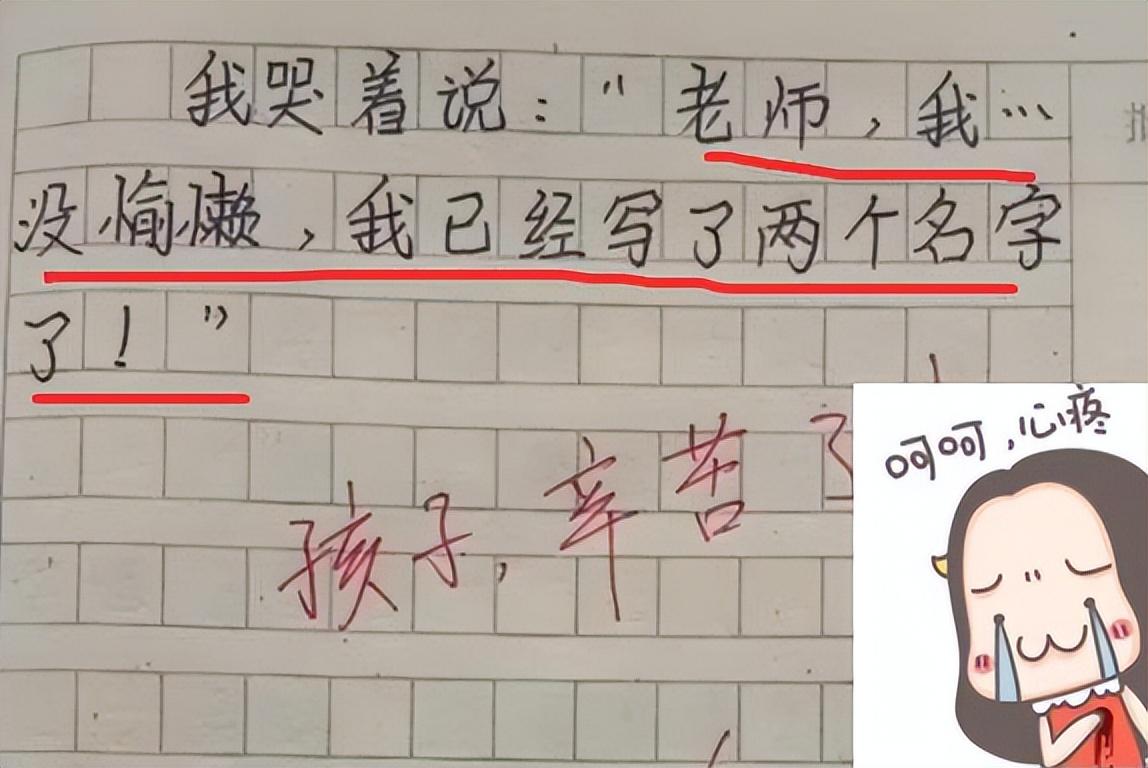 我哭着说:“老师,我…
没愉懒,我已经写了两个名字
了!”
孩子,辛苦了
呵呵,心疼